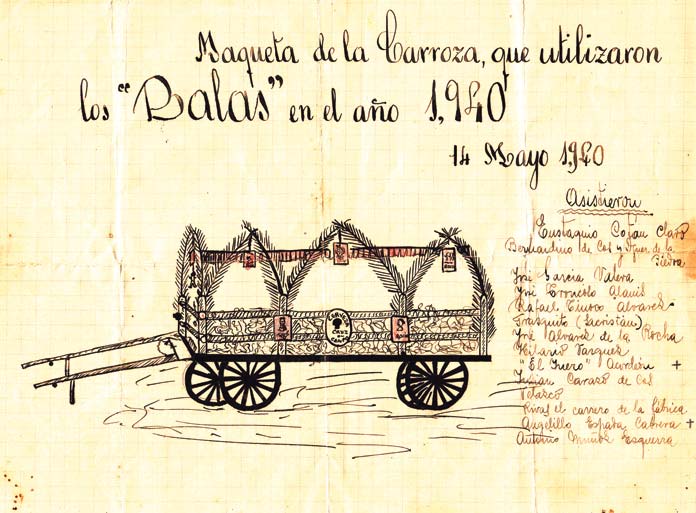 Maqueta de la Carroza, que utilizaron
los "Balas" en el año 1,940
14 Mayo 1,940
Asistieron
Eustaquio Cojan Claro
Bernardino de Cel y de la
Piedra
José García Valera
José Torneblo
Rafael Tinoco Alvarez
Frasquito (Sacristán)
José Alvarez de la Rocha
Hilario Vazquez
"El Inero" Acordeón +
Julián Carazo de Cel
Velasco
Rivas el carrero de la fábrica
Angelillo España Cabrera +
Antonio Muñoz Esquerra
CRUZ